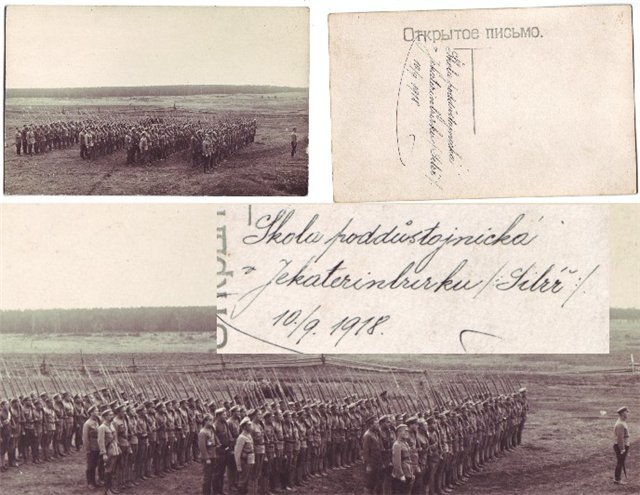 Открытое письмо.
Škola poddůstojnická
v Jekaterinburku /:Sibiř:/.
10./9. 1918.
Škola poddůstojnická
v Jekaterinburku /:Sibiř:/.
10./9. 1918.